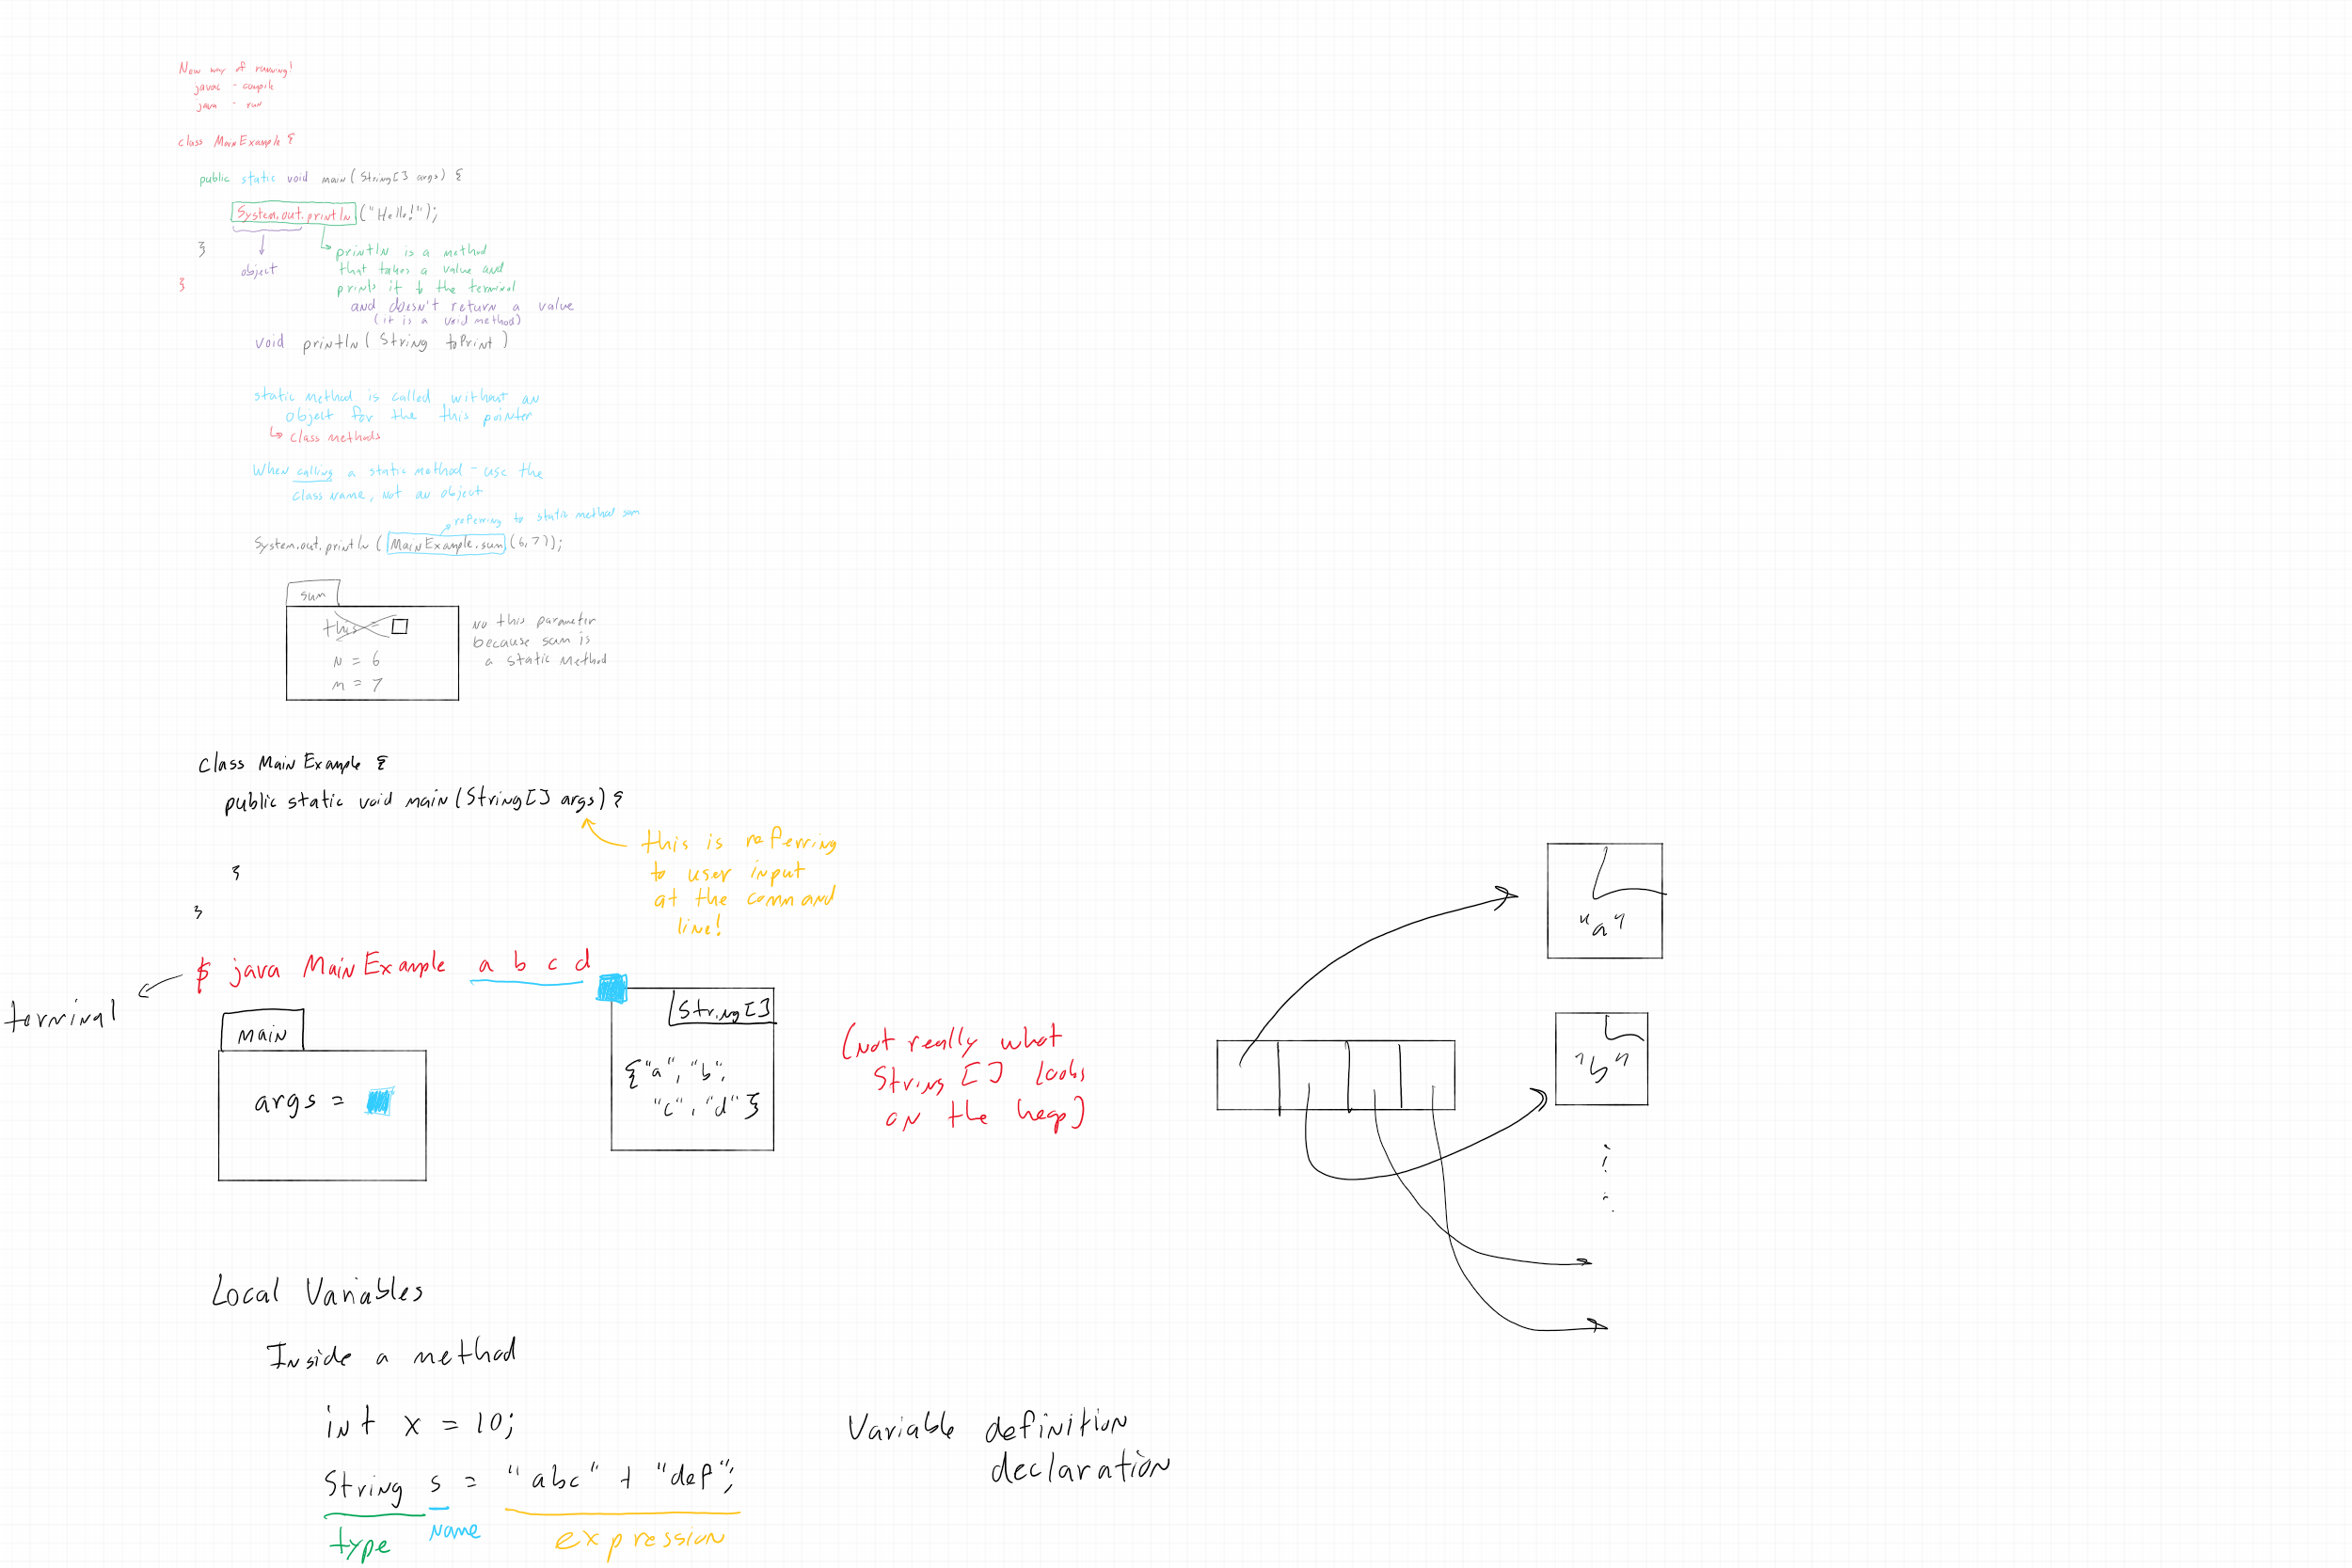 New way of running!
javac - compile
java - run
class MainExample {
public static void main(String[] args) {
System.out.println("Hello!");
}
object
println is a method
that takes a value and
prints it to the terminal
}
and doesn't return a value
(it is a void method)
void println(String toPrint)
static method is called without an
object for the this pointer
class methods
When calling a static method - use the
class name, not an object
referring to static method sum
System.out.println(MainExample.sum(6,7));
sum
this =
n = 6
m = 7
no this parameter
because sum is
a static method
class MainExample {
public static void main(String[] args) {
this is referring
to user input
at the command
line!
}
}
$ java MainExample a b c d
terminal
main
args =
String[]
{"a", "b",
"c", "d"}
(not really what
String[] looks
on the heap)
"a"
"b"
Local Variables
Inside a method
int x = 10;
String s = "abc" + "def";
type
name
expression
Variable definition
declaration